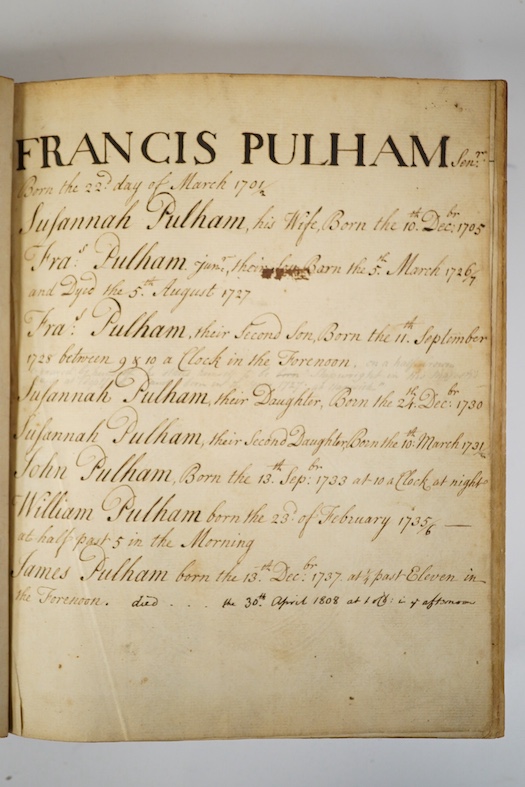 FRANCIS PULHAM Senr.
Born the 22d day of March 1701/2
Susannah Pulham, his Wife, Born the 10th Decbr: 1705
Fras: Pulham junr, their Son Born the 5th. March 1726/7
and Dyed the 5th August 1727
Fras: Pulham, their Second Son, Born the 11th. September
1728 between 9 & 10 a Clock in the Forenoon.
Susannah Pulham, their Daughter, Born the 24th Decbr: 1730
Susannah Pulham, their Second Daughter, Born the 10th: March 1731/
John Pulham, Born the 13th. Sepbr: 1733 at 10 a Clock at night
William Pulham born the 23d of February 1735/6 —
at half past 5 in the Morning
James Pulham born the 13th Decbr: 1737. at ¼ past Eleven in
the Forenoon. died . . . the 30th April 1808 at 1 in ye afternoon